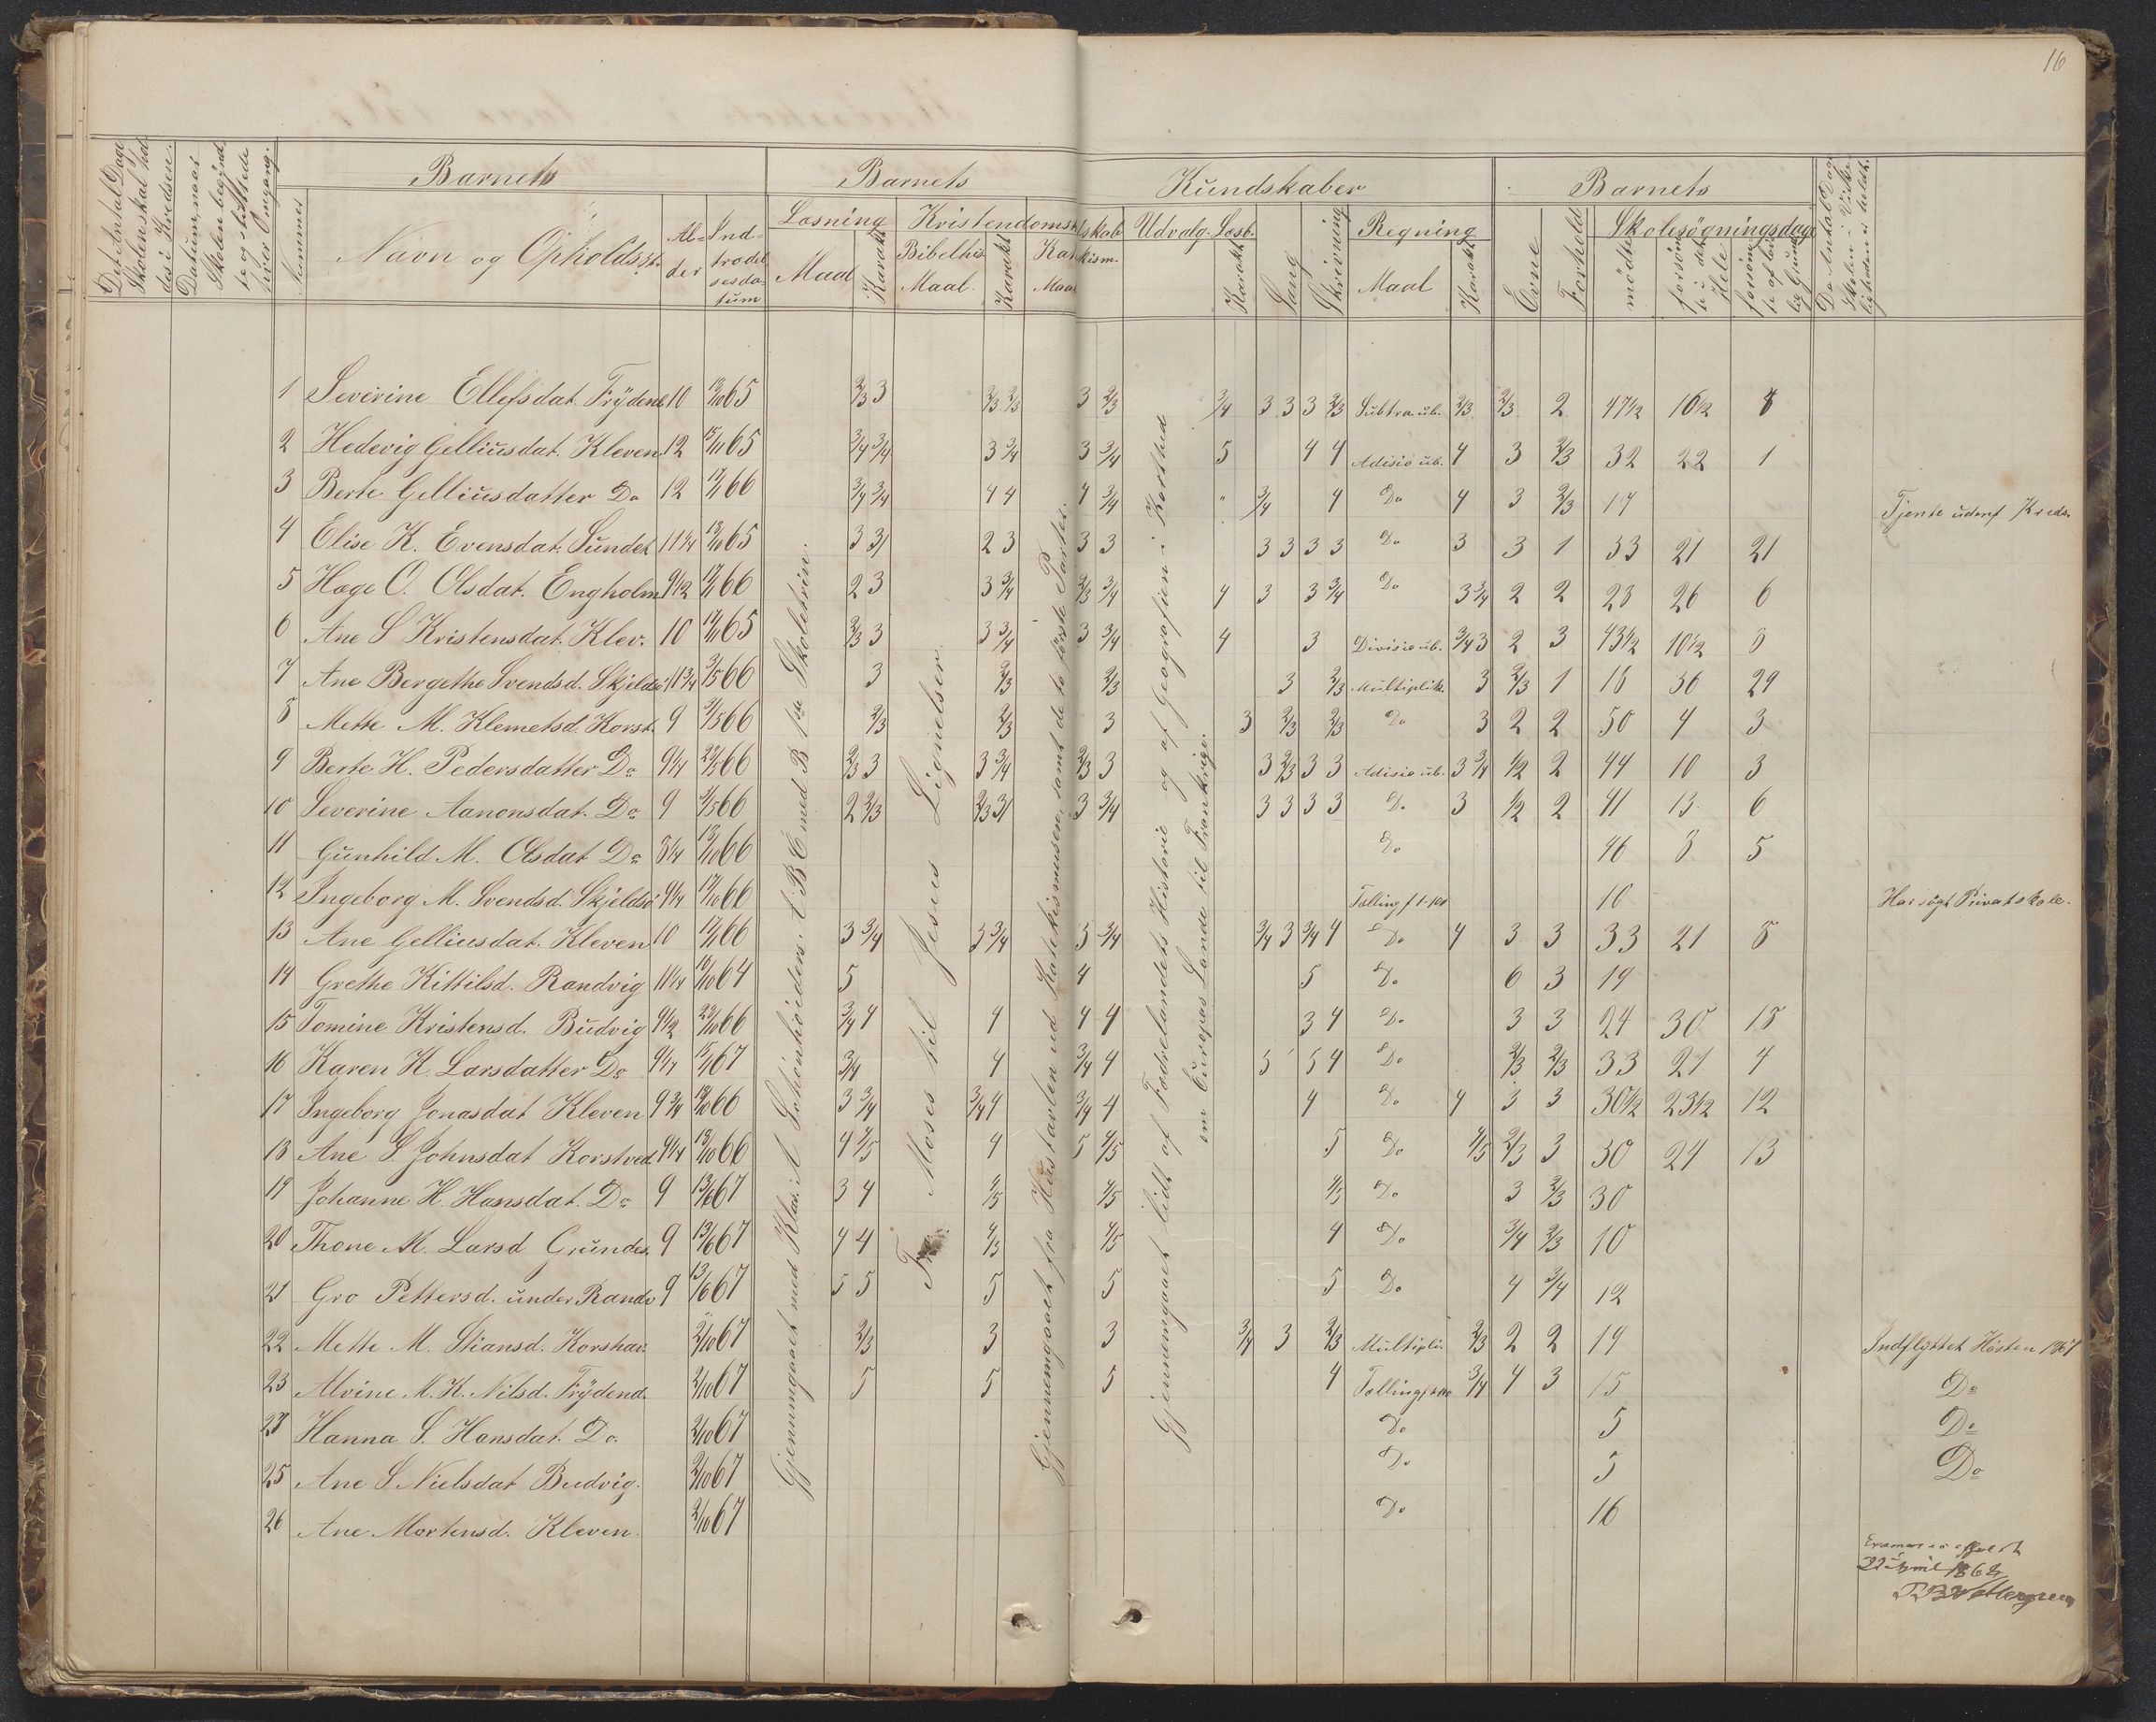 16
Det Antal Dage Skolen skal holdes i Kredsen.
Datum, naar Skolen begyndte og sluttede hver Omgang.
Barnets
Barnets
Kundskaber
Barnets
Nummer
Navn og Opholdsst.
Alder
Indtrædelsesdatum
Læsning
Kristendomskundskab
Udvalg. Læsb.
Sang
Skrivning
Regning
Evne
Forhold
Skolesøgningsdage
Maal
Karakt
Bibelhis
Maal
Karakt
Maal
Karakt
Maal
Karakt
mødte
forsømte i det Hele
1 Severine Ellefsdat. Frÿdenb 10 65 2/3 3 2/3 2/3 3 2/3 3/4 3 3 3 2/3 Subtra üb. 2/3 2/3 2 47 1/2 16 1/2 8
2 Hedevig Gelliusdat. Kleven 12 65 3/4 3/4 3 3/4 3 3/4 5 4 4 Adisio üb. 4 3 2/3 32 22 1
3 Berte Gelliusdatter Do 12 66 3/4 3/4 4 4 4 3/4 " 3/4 4 Do 4 3 2/3 17 Tjente udenf Kreds.
4 Elise K. Evensdat. Sundet 11 1/4 65 3 3 2 3 3 3 3 3 3 3 Do 3 3 1 33 21 21
5 Hage O. Olsdat. Engholm 9 1/2 66 2 3 3 3/4 2/3 3/4 4 3 3 3/4 Do 3 3/4 2 2 28 26 6
6 Ane S Kristensdat. Klev. 10 65 2/3 3 3 3/4 3 3/4 4 3 Divisio üb. 3/4 3 2 3 43 1/2 10 1/2 8
7 Ane Bergethe Svendsd. Skjeldsö 11 3/4 66 3 2/3 2/3 3 2/3 Multiplik. 3 2/3 1 18 36 29
8 Mette M. Klemetsd. Korst. 9 66 2/3 2/3 3 3 2/3 2/3 Do 3 2 2 50 4 3
9 Berte H. Pedersdatter Do 9 1/4 66 2/3 3 3 3/4 2/3 3 3 2/3 3 3 Adisio üb. 3 3/4 1/2 2 44 10 3
10 Severine Aanonsdat. Do 9 66 2 2/3 2/3 3 3 3/4 3 3 3 3 Do 3 1/2 2 41 13 6
11 Gunhild M. Olsdat Do 8 1/4 66 Do 46 8 5
12 Ingeborg M. Svendsd. Skjeldsö 9 1/4 66 Tælling f 1-100 10 Har søgt Privatskole.
13 Ane Gelliusdat. Kleven 10 66 3 3/4 3 3/4 3 3/4 3/4 3 3/4 4 Do 4 3 3 33 21 8
14 Grethe Kittilsd. Randvig 11 1/4 64 5 4 5 Do 6 3 19
15 Tomine Kristensd. Budvig 9 1/2 66 3/4 4 4 4 4 3 4 Do 3 3 24 30 18
16 Karen K. Larsdatter Do 67 3/4 4 3/4 4 5 5 4 Do 2/3 2/3 33 21 4
17 Ingeborg Jonasdat Kleven 9 3/4 66 3 3/4 3/4 4 3/4 4 4 Do 4 3 3 30 1/2 23 1/2 12
18 Ane S Johnsdat Korstved. 9 1/4 66 4 4/5 4 5 4/5 5 Do 4/5 2/3 3 30 24 13
19 Johanne H. Hansdat. Do 9 67 3 4 4/5 4/5 4/5 Do 3 2/3 30
20 Thone M. Larsd Grundes. 9 67 4 4 4/5 4/5 4 Do 3/4 2/3 10
21 Gro Pettersd. under Randv 9 67 5 5 5 5 5 Do 4 3/4 12
22 Mette M. Stiansd. Korshav. 67 2/3 3 3 3/4 3 2/3 Multipli. 2/3 2 2 19 Indflyttet Høsten 1867
23 Alvine M. K. Nilsd. Frÿdend. 67 5 5 5 4 Tælling 3/4 4 3 15 Do
Hanna S. Hansdat. Do. 67 Do 5 Do
25 Ane S Nielsdat Budvig. 67 Do 5 Do
26 Ane Mortensd. Kleven. 67 Do 16
Gjennemgaaet med Klas. A Schönhöiders A B C med B paa Skoletrin.
Fra Moses til Jesus Lignelser
Gjennemgaaet fra Hustavlen ud Katekismusen, samt de to første Parter.
Gjennemgaaet lidt af Fædrelandets Historie og af Geografien i Korthed
om Europas Lande til Frankrige.
April 1868